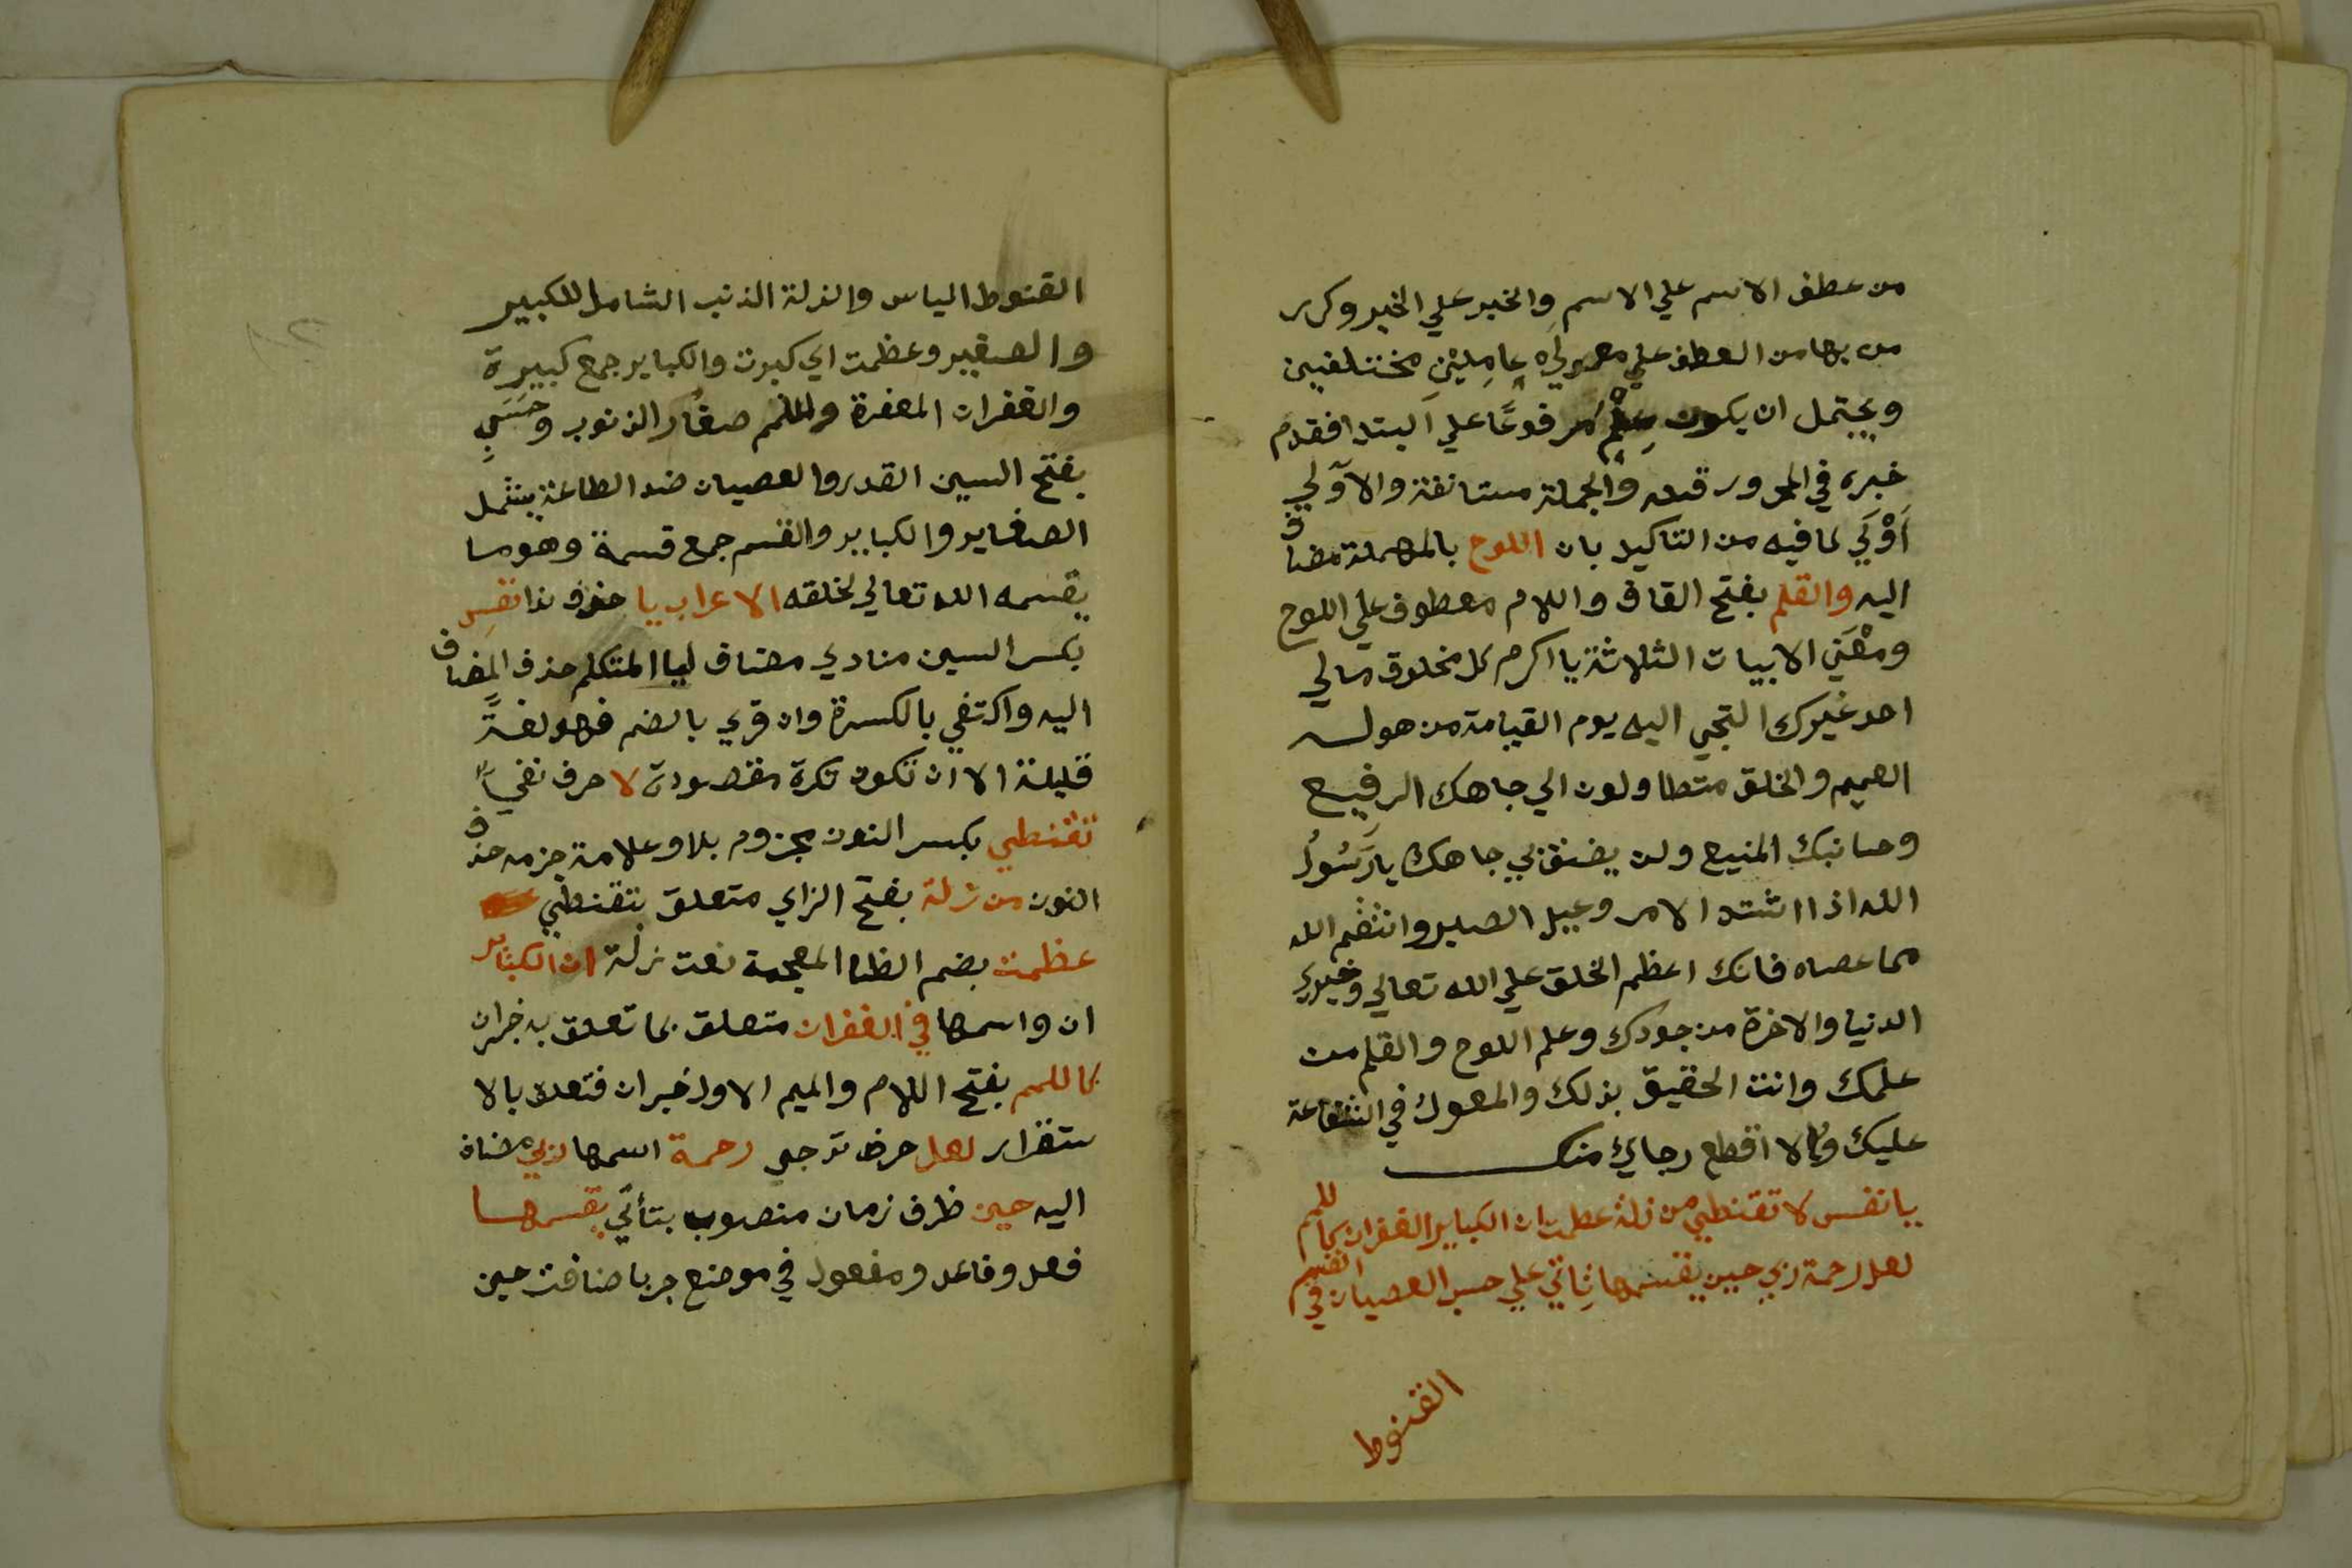 من عطف الاسم علي الاسم والخبر علي الخبر وكرر
من بها من العطف علي معمولي عاملين مختلفين
ويحتمل ان يكون علم مرفوعا علي البتدا فقدم
خبره في المجرور قبله والجملة مستانفة والاولي
اولي لما فيه من التاكيد بان اللوح بالمهملة مضاف
اليه والقلم بفتح القاف واللام معطوف علي اللوح
ومعني الابيات الثلاثة يا اكرم كل مخلوق مالي
احد غيرك التجي اليه يوم القيامة من هوله
العميم والخلق متطاولون الي جاهك الرفيع
وجانبك المنيع ولن يضيق بي جاهك يا رسول
الله اذا اشتد الامر وعيل الصبر وانتقم الله
مما عصاه فانك اعظم الخلق علي الله تعالي وخيري
الدنيا والاخرة من جودك وعلم اللوح والقلم من
علمك وانت الحقيق بذلك والمعول في الشفاعة
عليك ولا اقطع رجاي منك
يا نفس لا تقنطي من زلة عظمت ان الكباير الغفران كاللمم
لعل رحمة ربي حين يقسمها تاتي علي حسب العصيان في القسم
القنوط
القنوط الياس والزلة الذنب الشامل للكبير
والصغير وعظمت اي كبرت والكباير جمع كبيرة
والغفران المغفرة واللمم صغار الذنوب وحسب
بفتح السين القدر والعصيان ضد الطاعة يشمل
الصغاير والكباير والقسم جمع قسمة وهو ما
يقسمه الله تعالي لخلقه الاعراب يا حرف ندا نفس
بكسر السين منادي مضاف ليا المتكلم حذف المضاف
اليه واكتفي بالكسرة وان قري بالضم فهو لغة
قليلة الا ان تكون نكرة مقصودة لا حرف نفي
تقنطي بكسر النون مجزوم بلا وعلامة جزمه حذف
النون من زلة بفتح الزاي متعلق بتقنطي
عظمت بضم الظا المعجمة نعت زلة ان الكباير
ان واسمها في الغفران متعلق بما تعلق به خبران
كاللمم بفتح اللام والميم الاول خبران فتعلق بالا
ستقرار لعل حرف ترجي رحمة اسمها ربي مضاف
اليه حين ظرف زمان منصوب بتأتي يقسمها
فعل وفاعل ومفعول في موضع جر باضافة حين